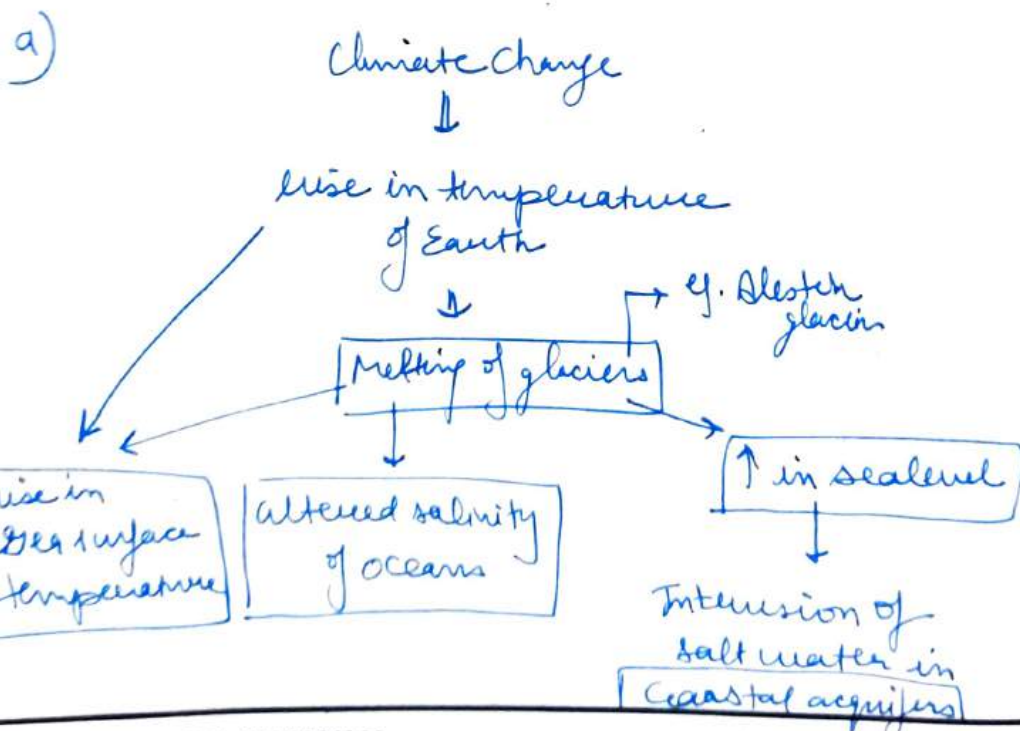 a)
Climate Change
↓
rise in temperature
of Earth
↓
→ eg. Alestch
glacier
Melting of glaciers
rise in
sea surface
temperature
altered salinity
of oceans
↑ in sealevel
Intrusion of
salt water in
Coastal acquifers